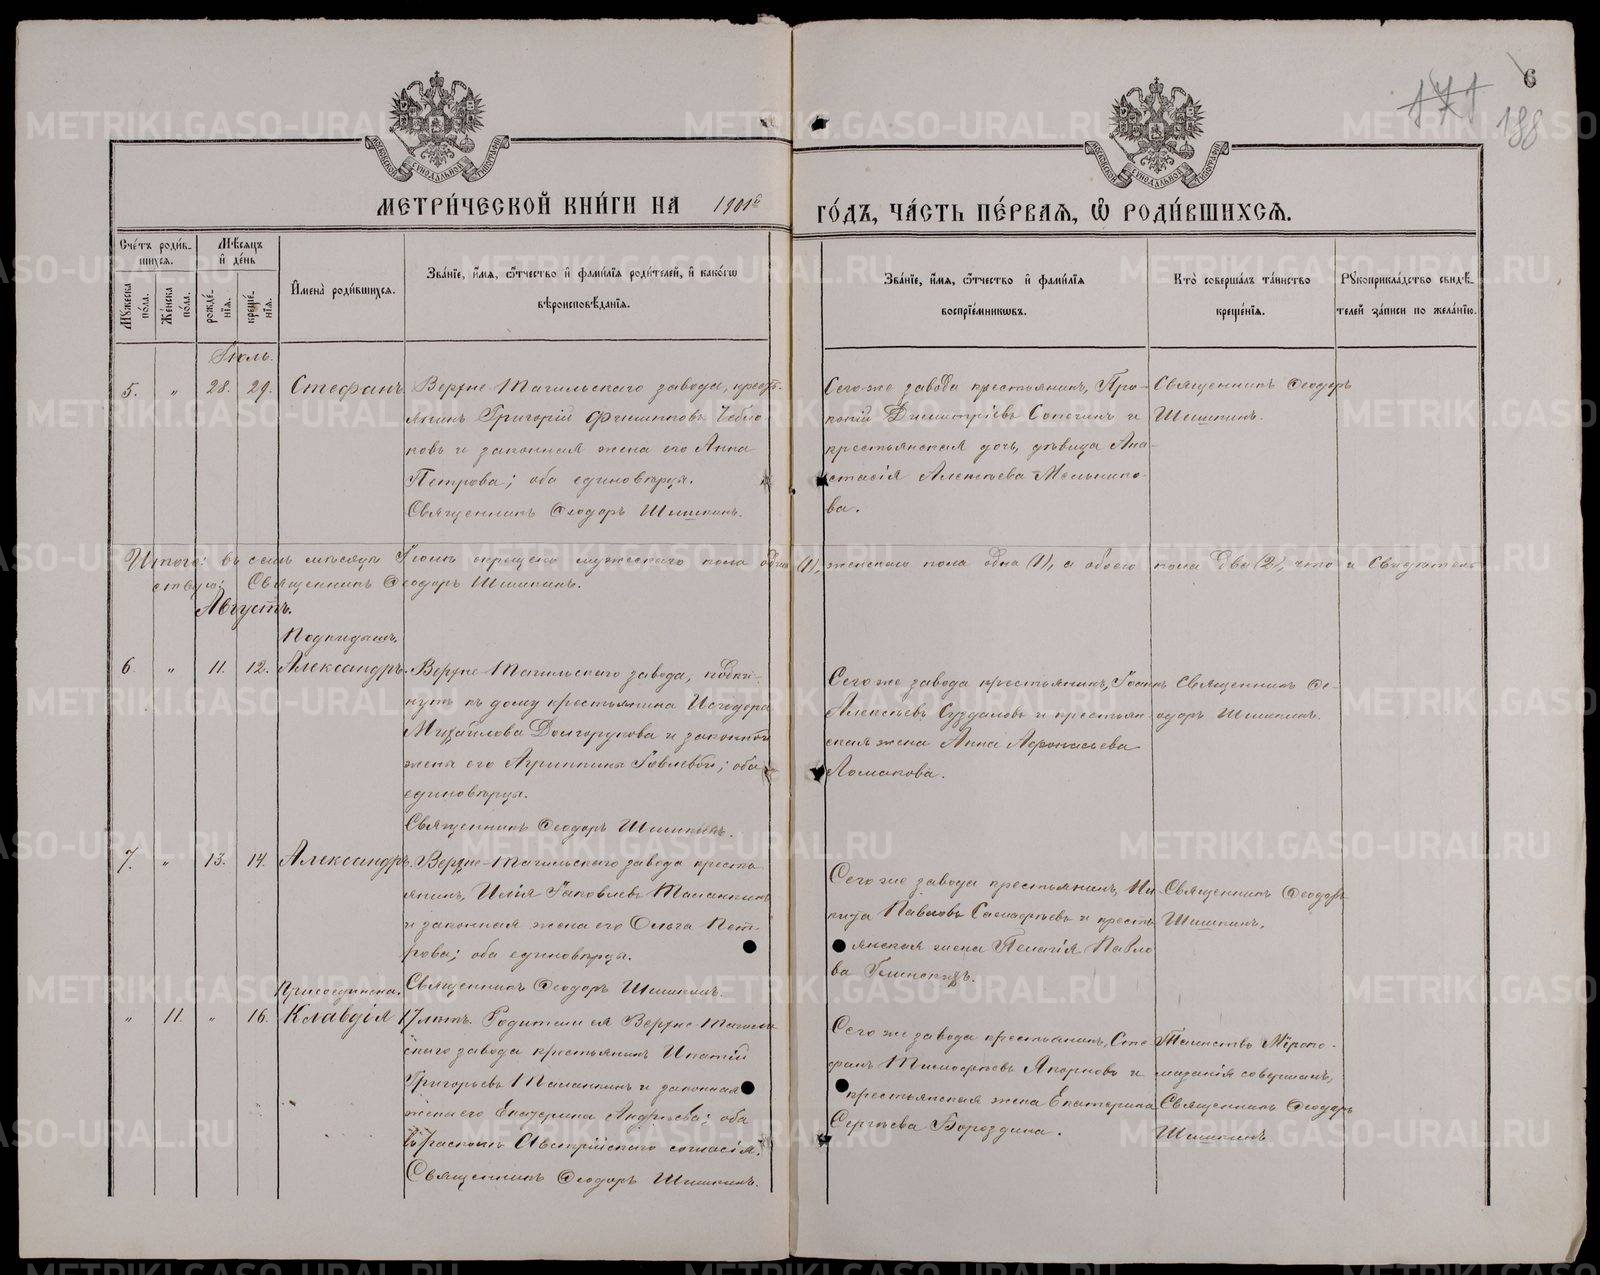 6
171
188
МОСКОВСКОЙ СѴНОДАЛЬНОЙ ТИПОГРАФІИ
МОСКОВСКОЙ СѴНОДАЛЬНОЙ ТИПОГРАФІИ
МЕТРИ́ЧЕСКОЙ КНИ́ГИ НА 1901й
ГО́ДЪ, ЧА́СТЬ ПЕ́РВАЯ, Ѡ РОДИ́ВШИХСЯ.
Сче́тъ роди́вшихся.
Мѣ́сяцъ и де́нь
Му́жеска по́ла.
Же́нска по́ла.
рожде́нія.
креще́нія.
Имена̀ роди́вшихся.
Зва́ніе, и́мя, ѻ́тчество и фами́лія роди́телей, и како́гѡ
вѣроисповѣ́данія.
Зва́ніе, и́мя, ѻ́тчество и фами́лія
воспріе́мниковъ.
Кто̀ соверша́лъ та́инство
креще́нія.
Рукоприкла́дство свидѣ́телей за́писи по жела́нію.
Іюль.
5. " 28. 29. Стефанъ
Верхне-Тагильскаго завода, кресть-
янинъ Григорій Филипповъ
ковъ и законная жена его Анна
Петрова; оба единовѣрцы.
Священникъ Ѳеодоръ Шишкинъ.
Сего же завода крестьянинъ, Про-
копій Димитріевъ Сопегинъ и
крестьянская дочь, дѣвица Ана-
стасія Алексѣева Мельнико-
ва.
Священникъ Ѳеодоръ
Шишкинъ.
Итого: въ семъ мѣсяцѣ Іюлѣ крещено мужескаго пола одинъ (1), женскаго пола одна (1), а обоего пола два (2), что и свидѣтель-
ствую: Священникъ Ѳеодоръ Шишкинъ.
Августъ.
Подкидышъ
6. " 11. 12. Александръ.
Верхне-Тагильскаго завода, подки-
нутъ къ дому крестьянина Исидора
Михайлова Долгорукова и законной
жены его Агриппины Іовлевой; оба
единовѣрцы.
Священникъ Ѳеодоръ Шишкинъ.
Сего же завода крестьянинъ, Іоаннъ
Алексѣевъ Суздаловъ и крестьян-
ская жена Анна Афонасьева
Ломакова.
Священникъ Ѳе-
одоръ Шишкинъ.
7. " 13. 14. Александръ.
Верхне-Тагильскаго завода кресть-
янинъ, Илія Іаковлевъ Маланкинъ
и законная жена его Ольга Пет-
рова; оба единовѣрцы.
Священникъ Ѳеодоръ Шишкинъ.
Сего же завода крестьянинъ, Ни-
кита Павловъ и кресть-
янская жена Пелагія Павло-
ва
Священникъ Ѳеодоръ
Шишкинъ.
Присоединена.
" 11. " 16. Клавдія
17 лѣтъ. Родители ея Верхне-Тагиль-
скаго завода крестьянинъ Ипатій
Григорьевъ Маланкинъ и законная
жена его Екатерина Андреева; оба
въ расколѣ Австрійскаго согласія.
Священникъ Ѳеодоръ Шишкинъ.
Сего же завода крестьянинъ, Сте-
фанъ Тимофѣевъ и
крестьянская жена Екатерина
Сергѣева Бороздина.
Таинство Мѵропо-
мазанія совершалъ,
Священникъ Ѳеодоръ
Шишкинъ
METRIKI.GASO-URAL.RU